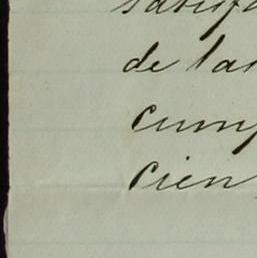 satisfa
de las
cump
cien